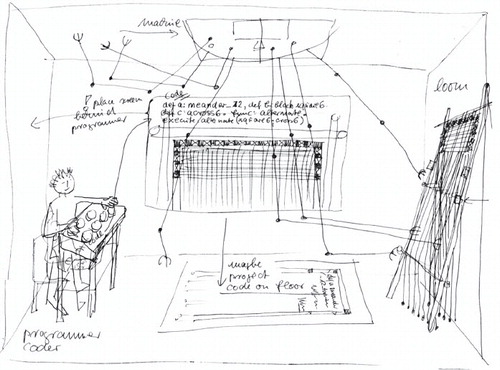 machine
loom
? place screen
behind
programmer
code
def a: meander_12, def b: block square6
def c: across6. func: alternate.
execute alternate (square6-cross6)
maybe
project
code on floor
programmer
coder